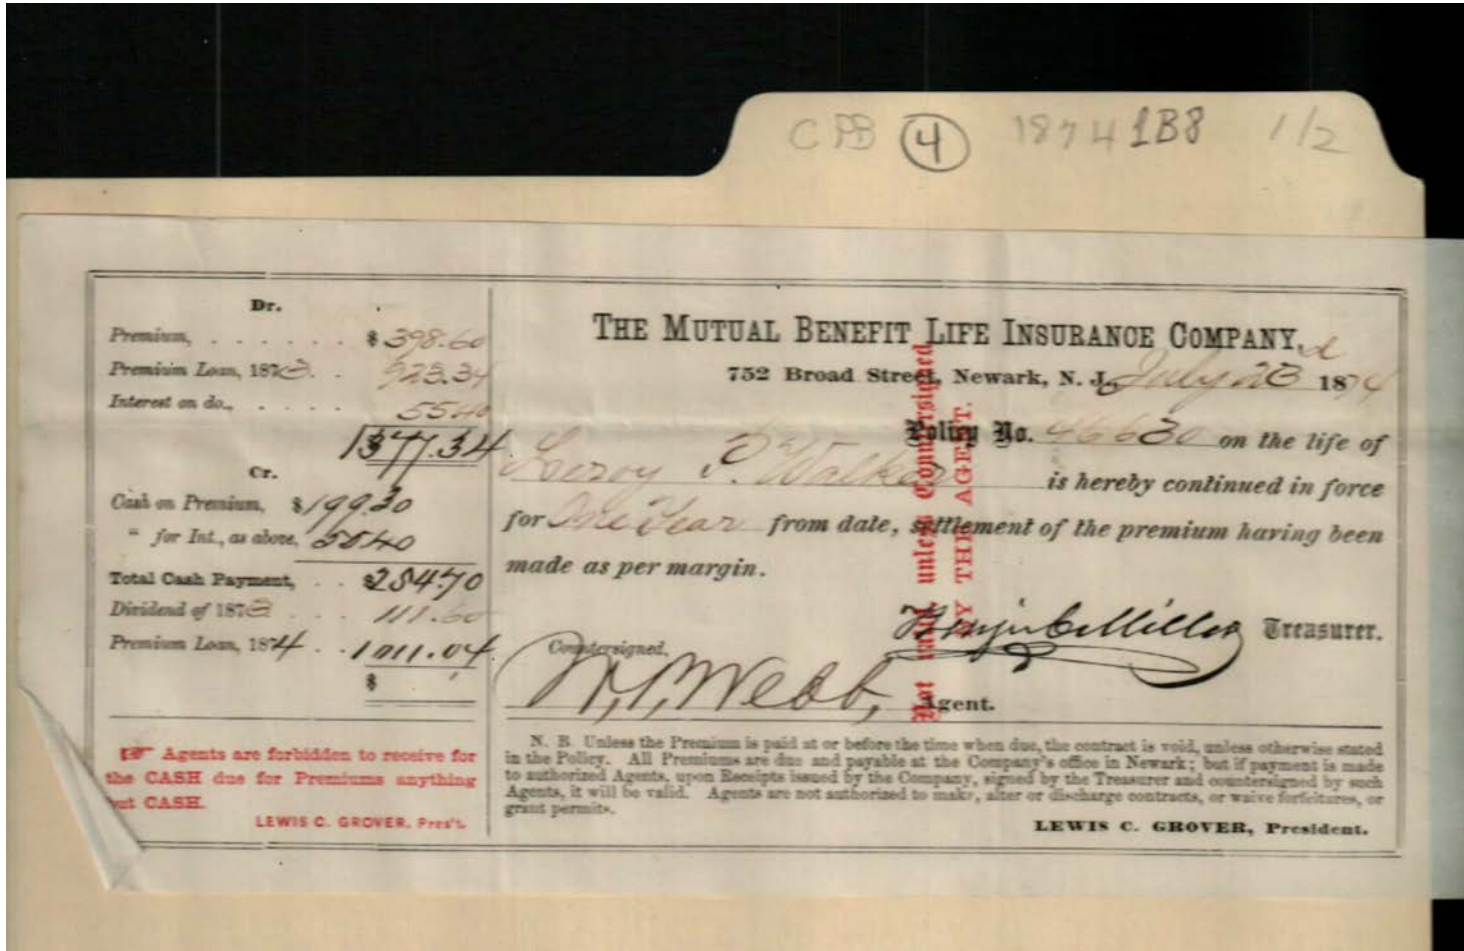 CPB 4 1874 1B8 1/2
Dr.
Premium, . . . . . . $ 398.60
Premium Loan, 1873. . . 923.34
Interest on do., . . . . 55.40
1377.34
Cr.
Cash on Premium, $199.30
" for Int., as above, 55.40
Total Cash Payment, . . $254.70
Dividend of 1873 . . . 111.60
Premium Loan, 1874 . . 1011.04
$
☞ Agents are forbidden to receive for
the CASH due for Premiums anything
but CASH.
LEWIS C. GROVER, Pres't.
THE MUTUAL BENEFIT LIFE INSURANCE COMPANY,
752 Broad Street, Newark, N. J., July 23d 1874
Policy No. 46630 on the life of
Leroy P. Walker is hereby continued in force
for One Year from date, settlement of the premium having been
made as per margin.
Benj. C. Miller Treasurer.
Countersigned,
Webb, Agent.
Not valid unless Countersigned
BY THE AGENT.
N. B. Unless the Premium is paid at or before the time when due, the contract is void, unless otherwise stated
in the Policy. All Premiums are due and payable at the Company's office in Newark; but if payment is made
to authorized Agents, upon Receipts issued by the Company, signed by the Treasurer and countersigned by such
Agents, it will be valid. Agents are not authorized to make, alter or discharge contracts, or waive forfeitures, or
grant permits.
LEWIS C. GROVER, President.